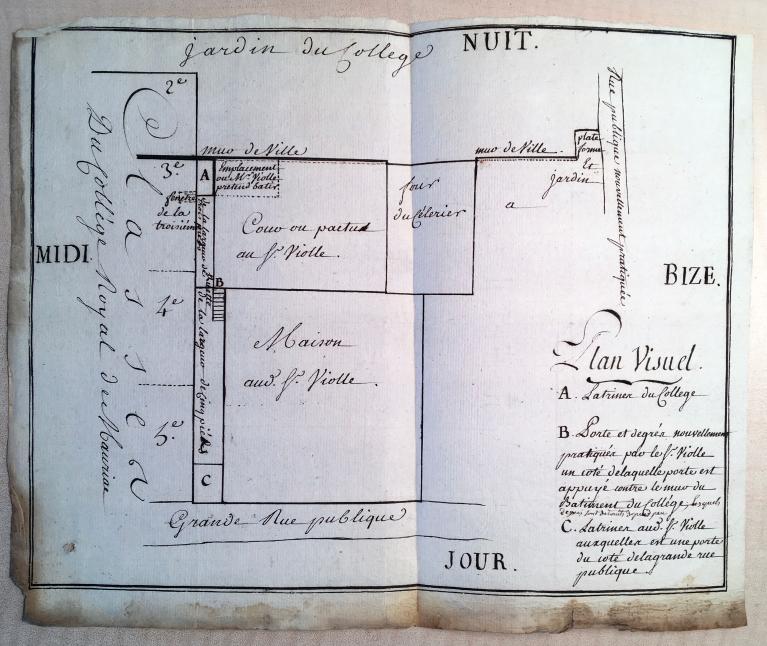 Jardin du College
NUIT.
2e
Classes
Du Collège Royal de Mauriac
mur de Ville
mur de Ville.
plate
forme
Et
Jardin
a
Rue publique nouvellement pratiquée
3e
A
Emplacement
ou Mr. Violle
pretend batir.
fenêtre
de la
troisième
Cour ou pactus
au Sr. Violle.
four
du Célerier
MIDI.
BIZE.
B
de la largeur de
de la largeur de cinq piéds
4e
Maison
aud. Sr. Violle.
5e.
C
Grande Rue publique
JOUR.
Plan Visuel.
A. Latrines du College
B. Porte et degrés nouvellement
pratiqués par le Sr. Violle
un coté delaquelle porte est
appuyé contre le mur du
Batiment du Collége, lesquels
C. Latrines aud. Sr. Violle
auxquelles est une porte
du coté delagrande rue
publique.